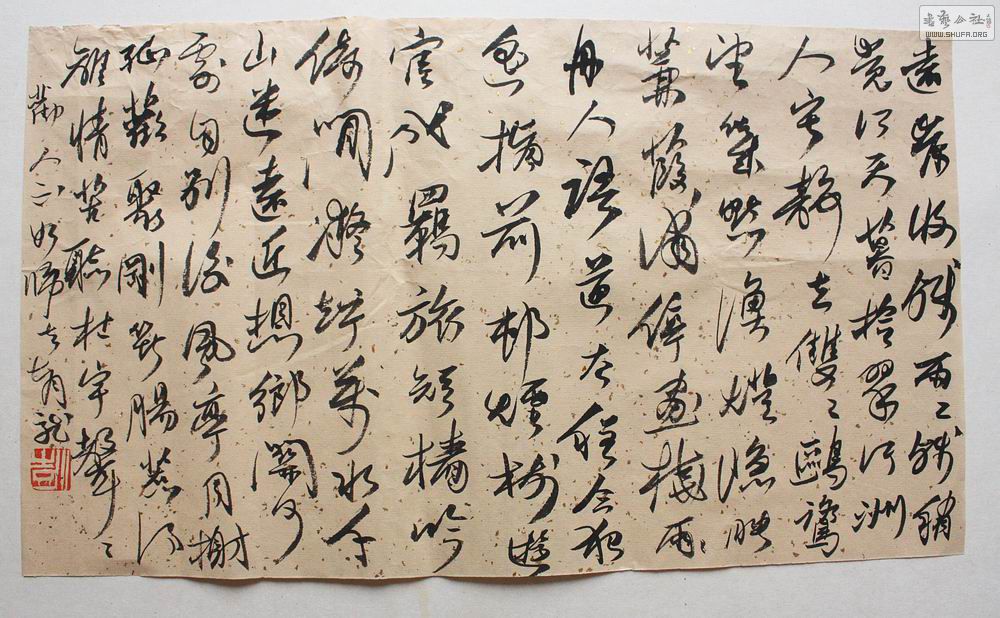 遠岸收殘雨〻殘稍
覺江天暮拾翠汀洲
人寂靜立雙〻鷗鷺
望幾點漁燈隱映
蒹葭浦停畫橈兩〻
舟人語道去程今夜
遙指前邨煙樹遊
宦成羈旅短檣吟
倚閒凝竚萬水千
山迷遠近想鄉關何
處自別後風亭月榭
孤歡聚剛斷腸惹得
離情苦聽杜宇聲〻
勸人不如歸去
書藝公社
WWW.SHUFA.ORG